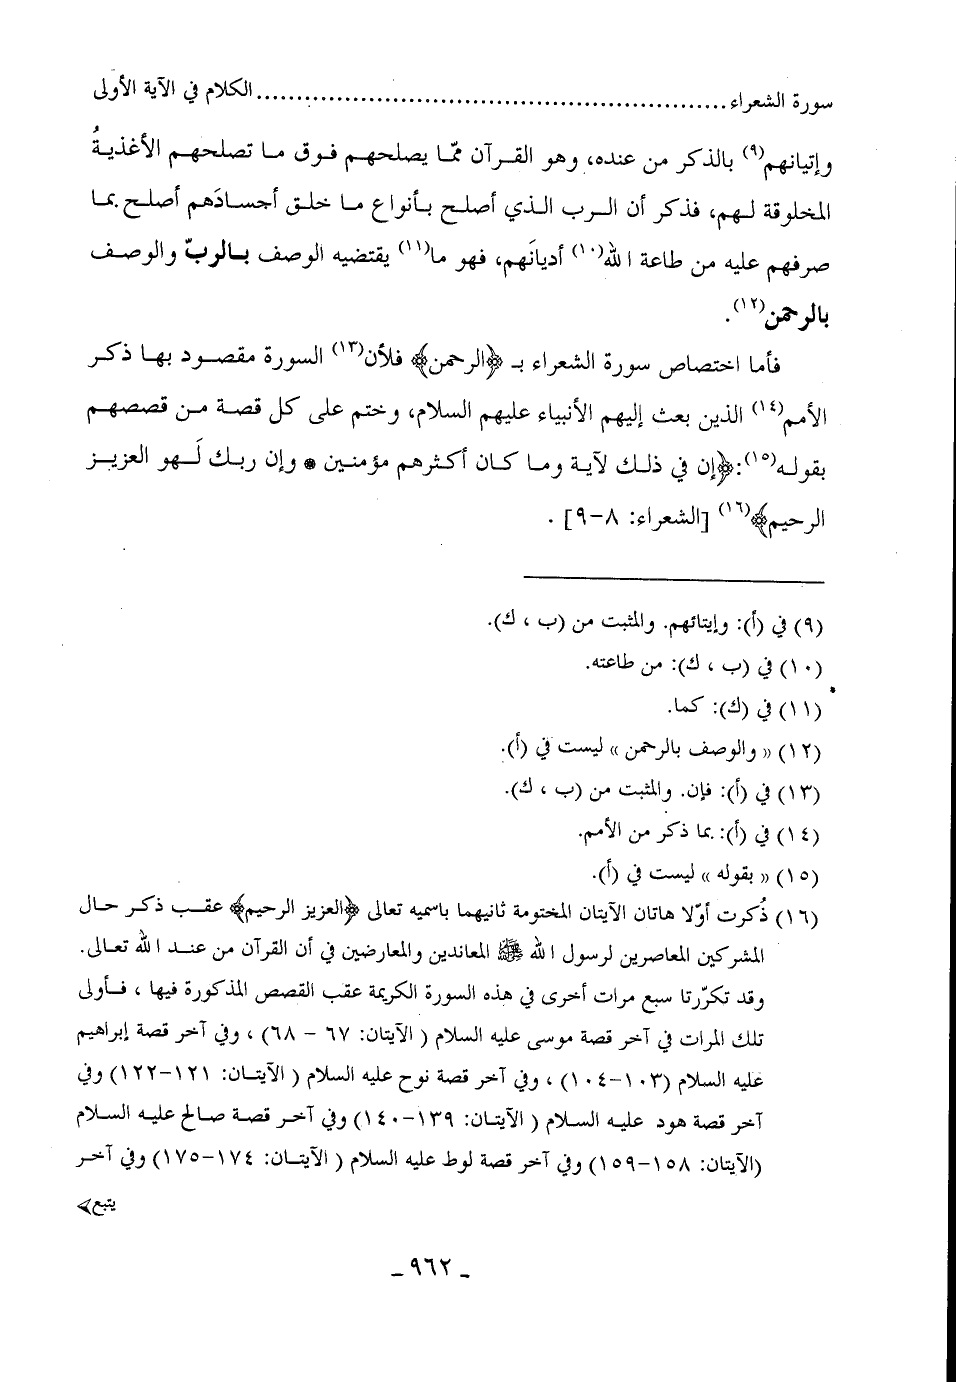 سورة الشعراء ............................................................ الكلام في الآية الأولى
وإتيانهم(٩) بالذكر من عنده، وهو القرآن ممّا يصلحهم فوق ما تصلحهم الأغذيةُ
المخلوقة لهم، فذكر أن الرب الذي أصلح بأنواع ما خلق أجسادَهم أصلح بما
صرفهم عليه من طاعة الله(١٠) أديانَهم، فهو ما(١١) يقتضيه الوصف بالربّ والوصف
بالرحمن(١٢).
فأما اختصاص سورة الشعراء بـ ﴿الرحمن﴾ فلأن(١٣) السورة مقصود بها ذكر
الأمم(١٤) الذين بعث إليهم الأنبياء عليهم السلام، وختم على كل قصة من قصصهم
بقوله(١٥): ﴿إن في ذلك لآية وما كان أكثرهم مؤمنين * وإن ربك لَهو العزيز
الرحيم﴾(١٦) [الشعراء: ٨-٩] .
(٩) في (أ): وإيتائهم. والمثبت من (ب ، ك).
(١٠) في (ب ، ك): من طاعته.
(١١) في (ك): كما.
(١٢) « والوصف بالرحمن » ليست في (أ).
(١٣) في (أ): فإن. والمثبت من (ب ، ك).
(١٤) في (أ): بما ذكر من الأمم.
(١٥) « بقوله » ليست في (أ).
(١٦) ذُكرت أوّلا هاتان الآيتان المختومة ثانيهما باسميه تعالى ﴿العزيز الرحيم﴾ عقب ذكر حال
المشركين المعاصرين لرسول الله ﷺ المعاندين والمعارضين في أن القرآن من عند الله تعالى.
وقد تكرّرتا سبع مرات أخرى في هذه السورة الكريمة عقب القصص المذكورة فيها ، فأولى
تلك المرات في آخر قصة موسى عليه السلام ( الآيتان: ٦٧ - ٦٨) ، وفي آخر قصة إبراهيم
عليه السلام (١٠٣-١٠٤) ، وفي آخر قصة نوح عليه السلام ( الآيتان: ١٢١-١٢٢) وفي
آخر قصة هود عليه السلام ( الآيتان: ١٣٩-١٤٠) وفي آخر قصة صالح عليه السلام
(الآيتان: ١٥٨-١٥٩) وفي آخر قصة لوط عليه السلام ( الآيتان: ١٧٤-١٧٥) وفي آخر
يتبع
ـ ٩٦٢ ـ